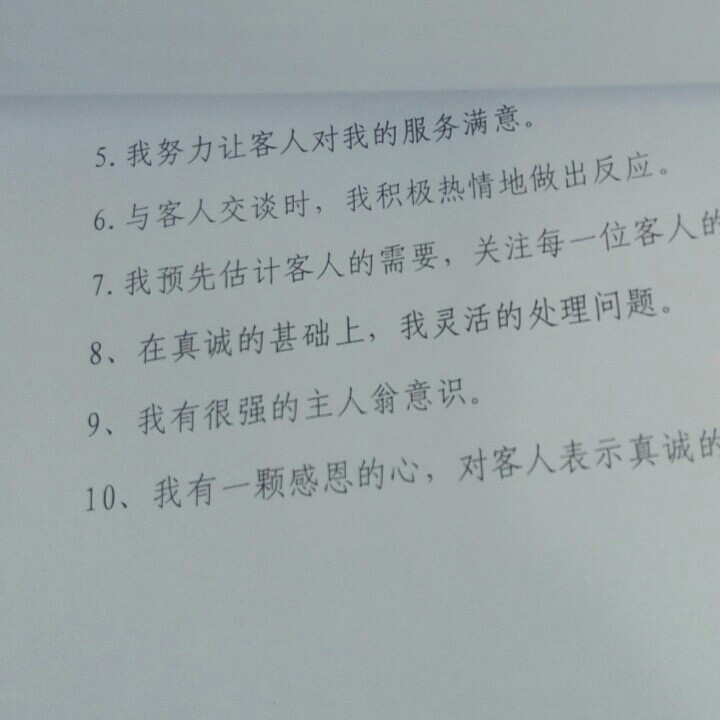 5. 我努力让客人对我的服务满意。
6. 与客人交谈时，我积极热情地做出反应。
7. 我预先估计客人的需要，关注每一位客人的
8、在真诚的甚础上，我灵活的处理问题。
9、我有很强的主人翁意识。
10、我有一颗感恩的心，对客人表示真诚的